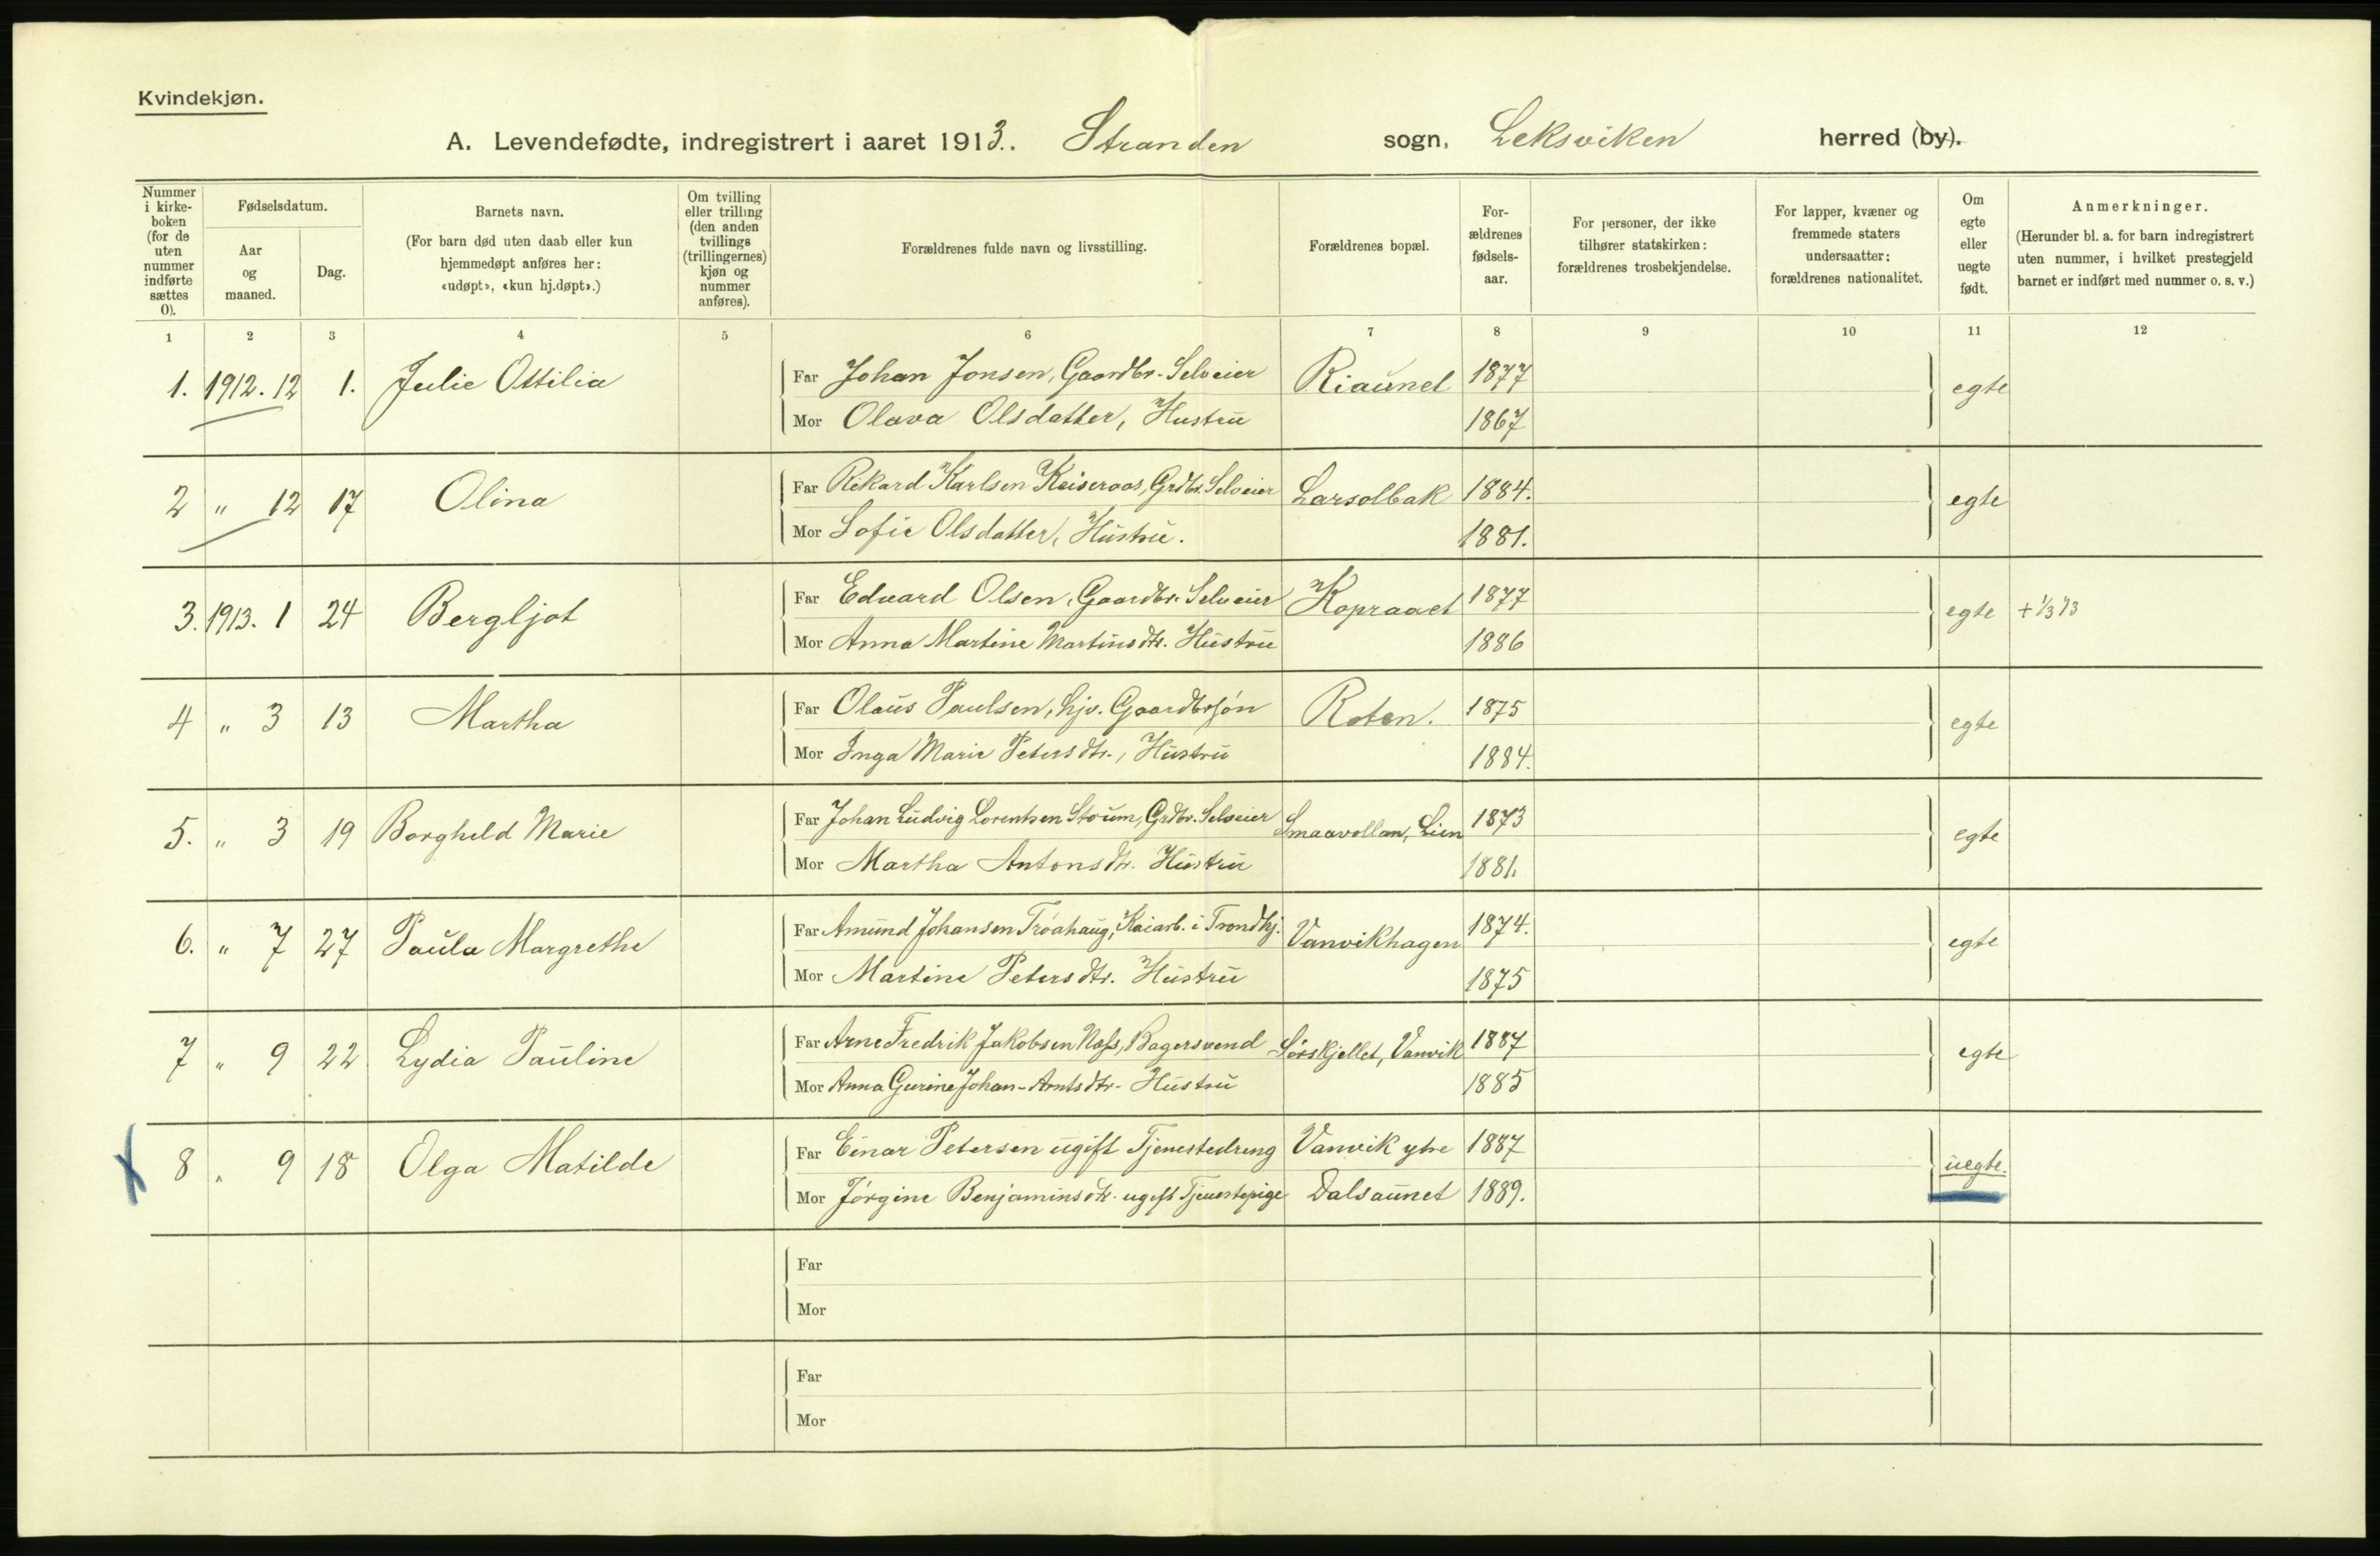 Kvindekjøn.
A. Levendefødte, indregistrert i aaret 1913. Stranden sogn, Leksviken herred (by).
Nummer i kirkeboken (for de uten nummer indførte sættes 0).
Fødselsdatum.
Aar og maaned.
Dag.
Barnets navn.
(For barn død uten daab eller kun hjemmedøpt anføres her: «udøpt», «kun hj.døpt».)
Om tvilling eller trilling (den anden tvillings (trillingernes) kjøn og nummer anføres).
Forældrenes fulde navn og livsstilling.
Forældrenes bopæl.
Forældrenes fødselsaar.
For personer, der ikke tilhører statskirken: forældrenes trosbekjendelse.
For lapper, kvæner og fremmede staters undersaatter: forældrenes nationalitet.
Om egte eller uegte født.
Anmerkninger.
(Herunder bl. a. for barn indregistrert uten nummer, i hvilket prestegjeld barnet er indført med nummer o. s. v.)
1 2 3 4 5 6 7 8 9 10 11 12
1. 1912. 12 1. Julie Ottilia Far Johan Jonsen, Gaardbr. Selveier Riaunet 1877 egte
Mor Olava Olsdatter, Hustru 1867
2 " 12 17 Olina Far Rikard Karlsen Keiseraas, Grdbr. Selveier Larsolbak 1884. egte
Mor Sofie Olsdatter, Hustru. 1881.
3. 1913. 1 24 Bergljot Far Edvard Olsen, Gaardbr. Selveier Kopraaet 1877 egte + 1/3 13
Mor Anna Martine Martinsdtr. Hustru 1886
4 " 3 13 Martha Far Olaus Paulsen, hjv. Gaardbrsøn Roten. 1875 egte
Mor Inga Marie Petersdtr., Hustru 1884.
5. " 3 19 Borghild Marie Far Johan Ludvig Lorentsen Strøm, Grdbr. Selveier Smaavollan, Lien 1873 egte
Mor Martha Antonsdtr. Hustru 1881.
6. " 7 27 Paula Margrethe Far Amund Johansen Trøahaug, Kaiarb. i Trondhj. Vanvikhagen 1874. egte
Mor Martine Petersdtr. Hustru 1875
7 " 9 22 Lydia Pauline Far Arne Fredrik Jakobsen Næss, Bagersvend Sørskjellet, Vanvik 1887 egte
Mor Anna Gurine Johan-Arntsdtr. Hustru 1885
8 " 9 18 Olga Matilde Far Einar Petersen ugift Tjenestedreng Vanvik ytre 1887 uegte.
Mor Jørgine Benjaminsdtr. ugift Tjenestepige Dalsaunet 1889.
Far
Mor
Far
Mor